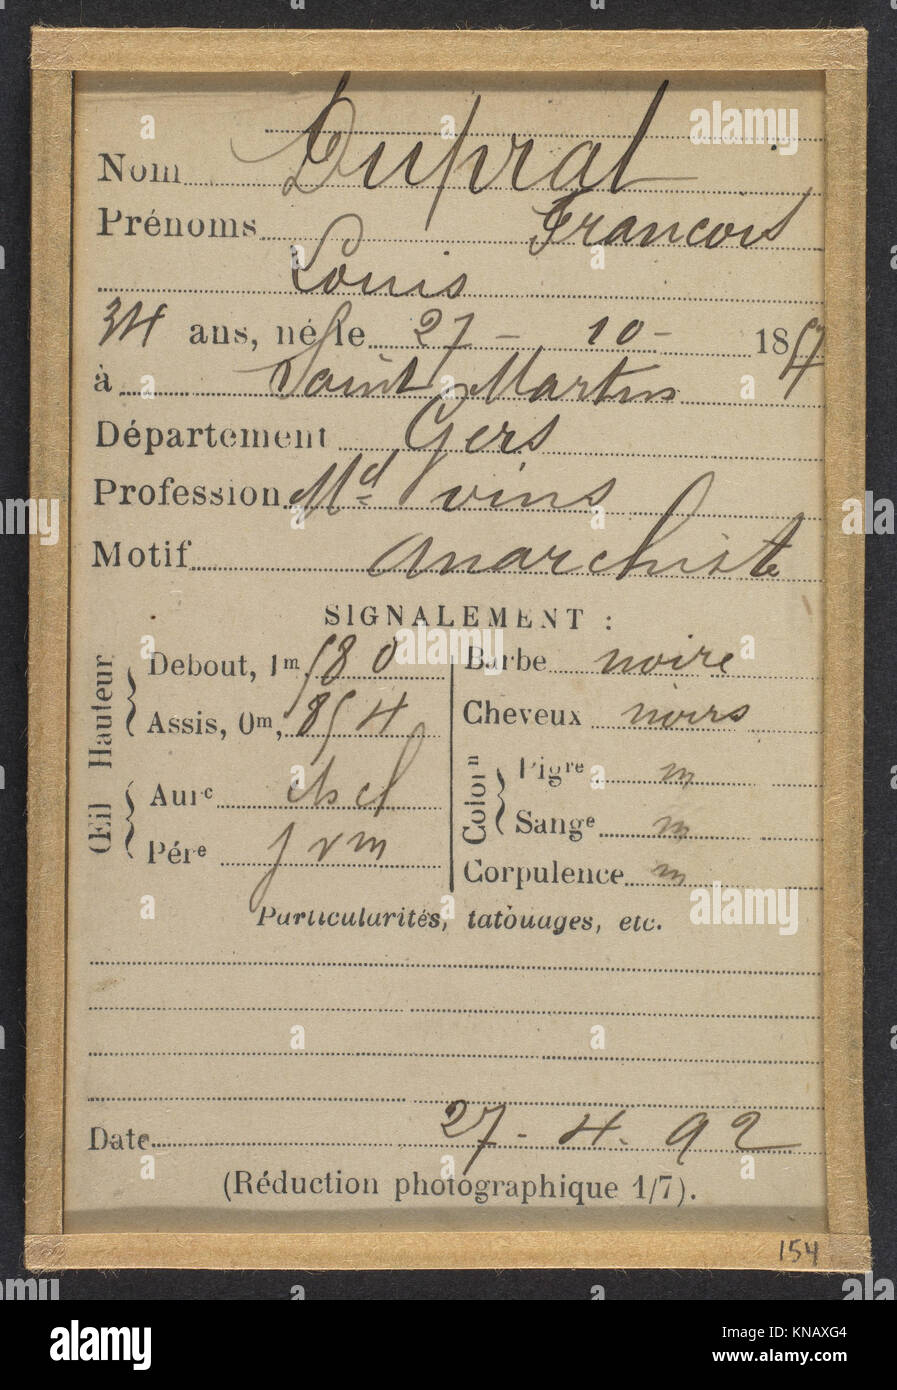 Nom Duprat
Prénoms François
Louis
34 ans, né le 27 - 10 - 1857
à Saint Martin
Département Gers
Profession Md vins
Motif anarchiste
SIGNALEMENT :
Hauteur
Debout, 1m 580
Assis, 0m, 854
Œil
Aurc ch cl
Pére j v m
Barbe noire
Cheveux noirs
Colorn
Pigre m
Sange m
Corpulence m
Particularités, tatouages, etc.
Date 27 - 4 . 92
(Réduction photographique 1/7).
154
alamy
Image ID: KNAXG4
www.alamy.com